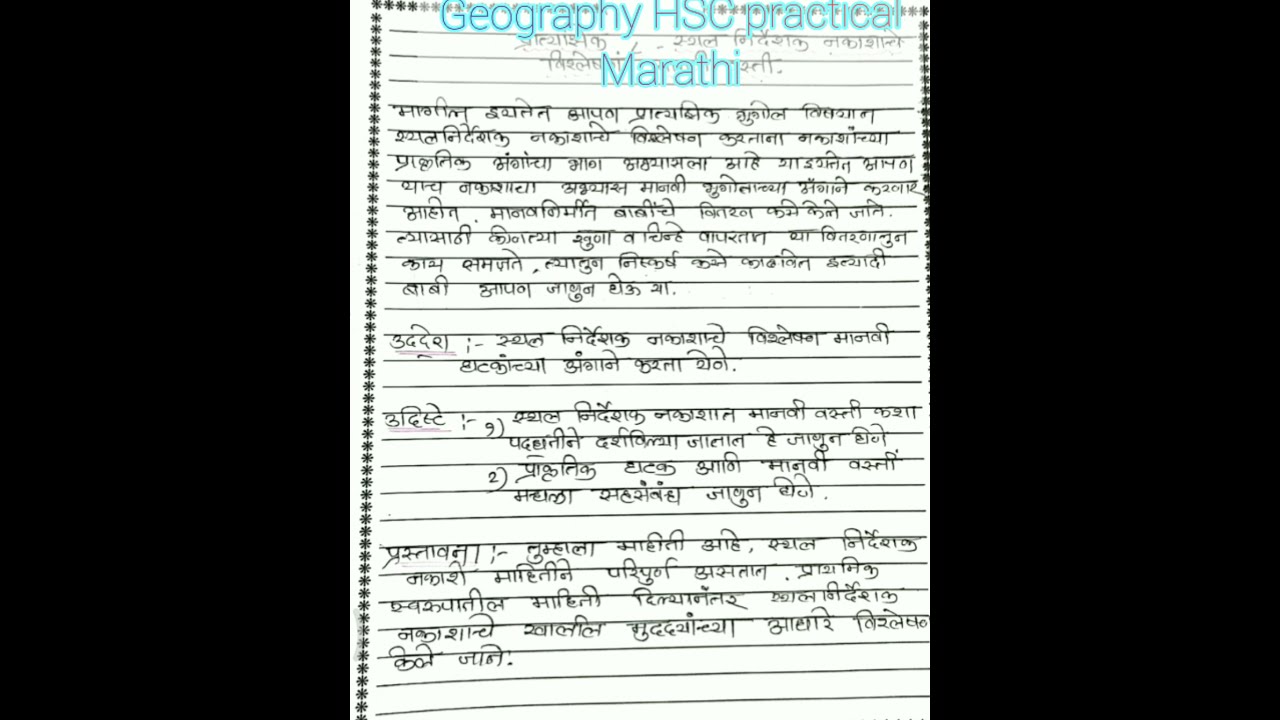 Geography HSC practical
Marathi
प्रात्यक्षिक - स्थल निर्देशक नकाशाचे
विश्लेषण वस्ती.
मागील इयत्तेत आपण प्रात्यक्षिक भूगोल विषयात
स्थलनिर्देशक नकाशाचे विश्लेषण करताना नकाशांच्या
प्राकृतिक अंगांचा भाग अभ्यासला आहे या इयत्तेत आपण
याच नकाशाचा अभ्यास मानवी भूगोलाच्या अंगाने करणार
आहोत. मानवनिर्मीत बाबींचे वितरण कसे केले जाते.
त्यासाठी कोणत्या खुणा व चिन्हे वापरतात या वितरणातून
काय समजते, त्यातुन निष्कर्ष कसे काढवित इत्यादी
बाबी आपण जाणुन घेऊ या.
उददेश :- स्थल निर्देशक नकाशाचे विश्लेषण मानवी
घटकांच्या अंगाने करता येणे.
उद्दिष्टे :- १) स्थल निर्देशक नकाशात मानवी वस्ती कशा
पदधतीने दर्शविल्या जातात हे जाणुन घेणे
२) प्राकृतिक घटक आणि मानवी वस्ती
मधला सहसंबंध जाणुन घेणे.
प्रस्तावना :- तुम्हाला माहीती आहे, स्थल निर्देशक
नकाशे माहितीने परिपुर्ण असतात. प्राथमिक
स्वरुपातील माहिती दिल्यानंतर स्थलनिर्देशक
नकाशाचे खालील मुददयांच्या आधारे विश्लेषण
केले जाते.